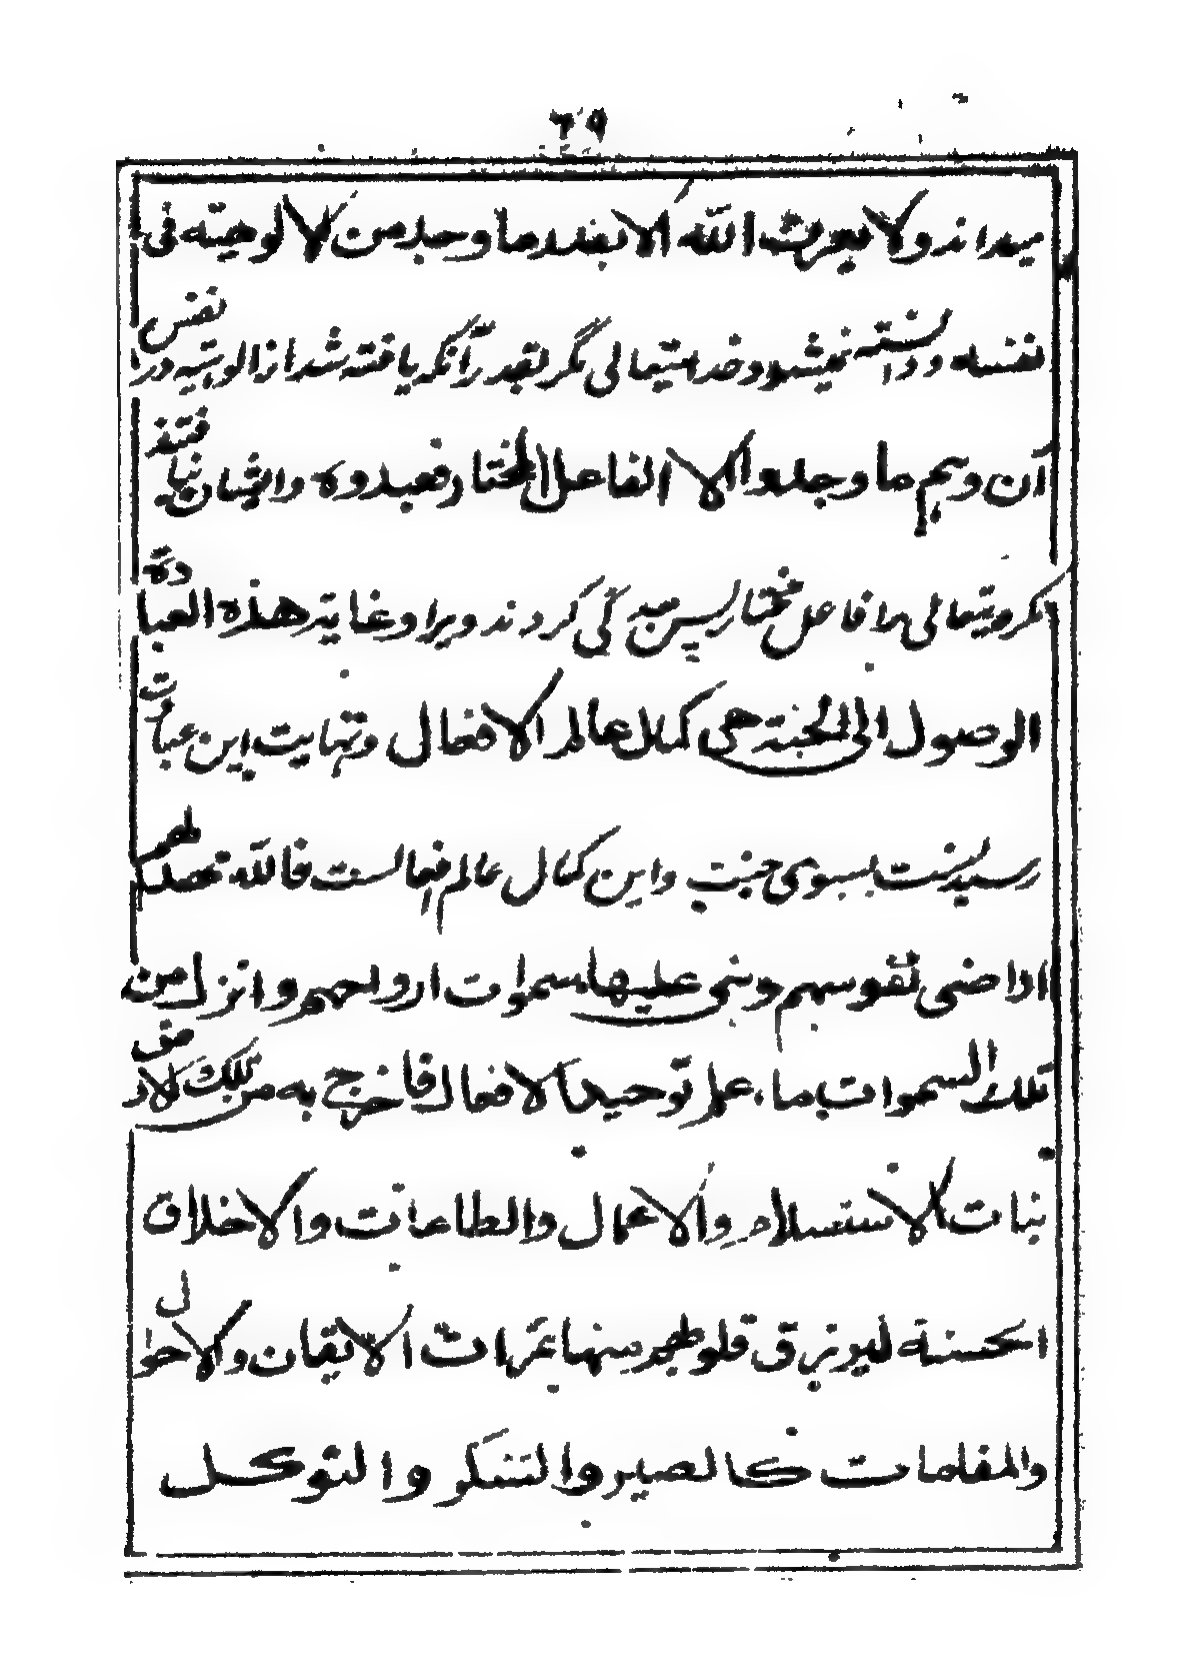 ٦٩
میداند ولا یعرف الله الا بقدر ما وجد من الالوهیّة فی
نفسه و دانسته نمیشود خدایتعالی مگر بقدر آنکه یافته شد از الوهیّة در نفس
آن و هم ما وجدوا الا الفاعل المختار فعبدوه و ایشان نیافتند
مگر ویتعالی را فاعل مختار پس بندگی کردند ویرا و غایة هذه العبادة
الوصول الی الجنة هی کمال عالم الافعال و نهایت این عبادت
رسیدنست بسوی جنت و این کمال عالم افعالست فالله تعصمکم
اراضی نفوسهم وبنی علیها سموات ارواحهم وانزل من
تلک السموات ماء علم توحید الافعال فاخرج به من تلک الارض
نبات الاستسلام والاعمال والطاعات والاخلاق
الحسنة لیرزق قلوبهم منها ثمرات الایقان والاحوال
والمقامات کالصبر والشکر والتوکل